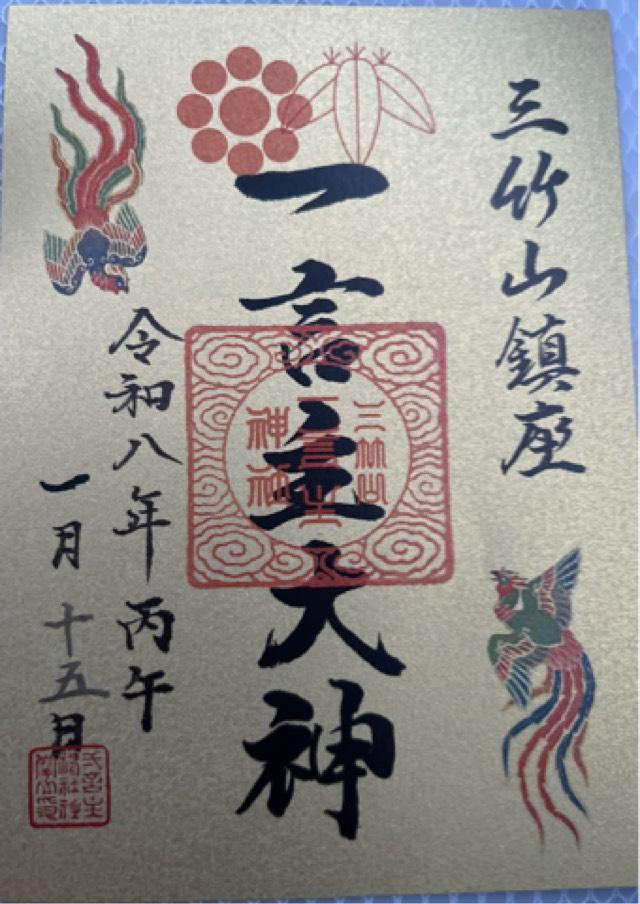 三竹山鎮座
一言主大神
三竹山
一言主
神社
令和八年丙午
一月十五日